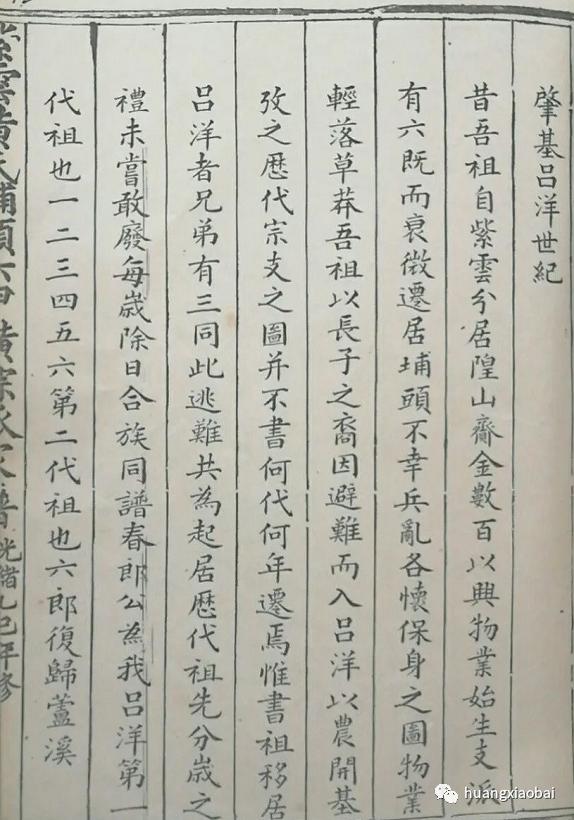 肇基吕洋世紀
昔吾祖自紫雲分居隍山齋金數百以興物業始生支派
有六既而衰微遷居埔頭不幸兵亂各懷保身之圖物業
輕落草莽吾祖以長子之裔因避難而入吕洋以農開基
攷之歴代宗支之圖并不書何代何年遷焉惟書祖移居
吕洋者兄弟有三同此逃難共為起居歴代祖先分歲之
禮未嘗敢廢每歲除日合族同譜春郎公為我吕洋第一
代祖也一二三四五六第二代祖也六郎復歸蘆溪
紫雲黄氏埔頭六甲黄宗氏家譜光緒九巳年修
huangxiaobai